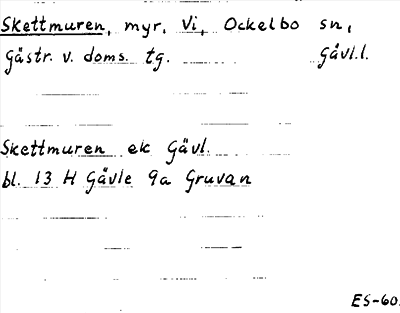 Skettmuren, myr, Vi, Ockelbo sn,
Gästr. v. doms. tg. Gävl.l.
Skettmuren ek Gävl.
bl. 13 H Gävle 9a Gruvan
ES-60